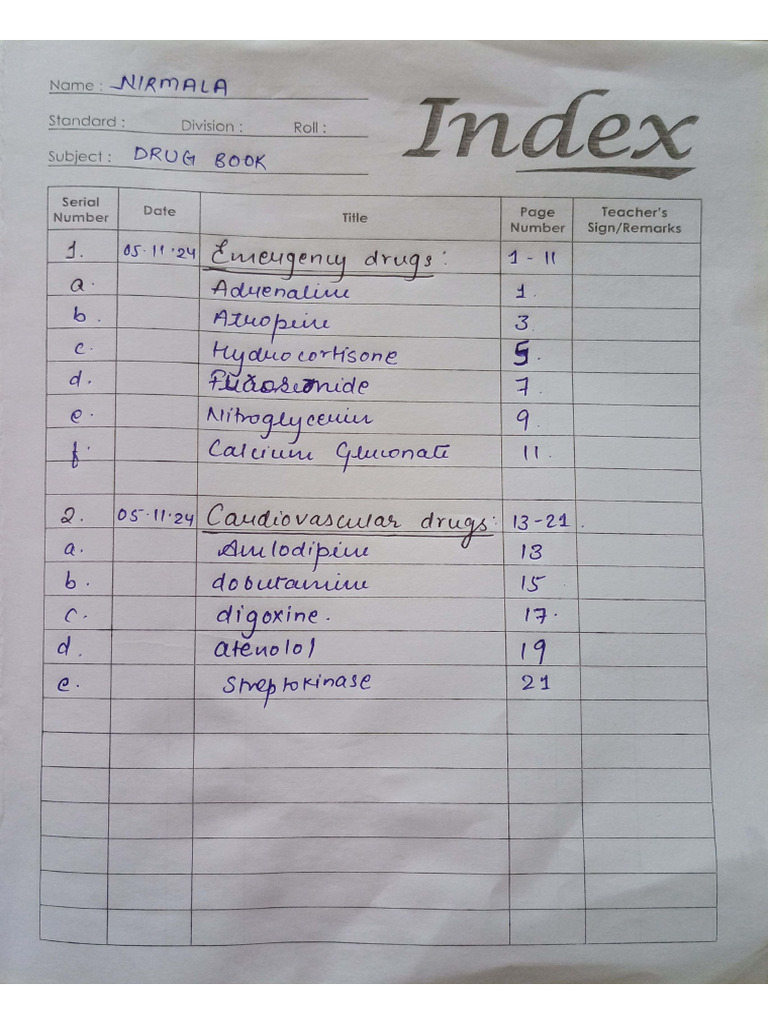 Name : NIRMALA
Index
Standard : Division : Roll :
Subject : DRUG BOOK
Serial Number Date Title Page Number Teacher's Sign/Remarks
1. 05.11.24 Emergency drugs: 1 - 11
a. Adrenaline 1.
b. Atropine 3
c. Hydrocortisone 5.
d. Furosemide 7
e. Nitroglycerin 9.
f. Calcium Gluconate 11.
2. 05.11.24 Cardiovascular drugs: 13-21.
a. Amlodipine 13
b. dobutamine 15
c. digoxine. 17.
d. atenolol 19
e. Streptokinase 21